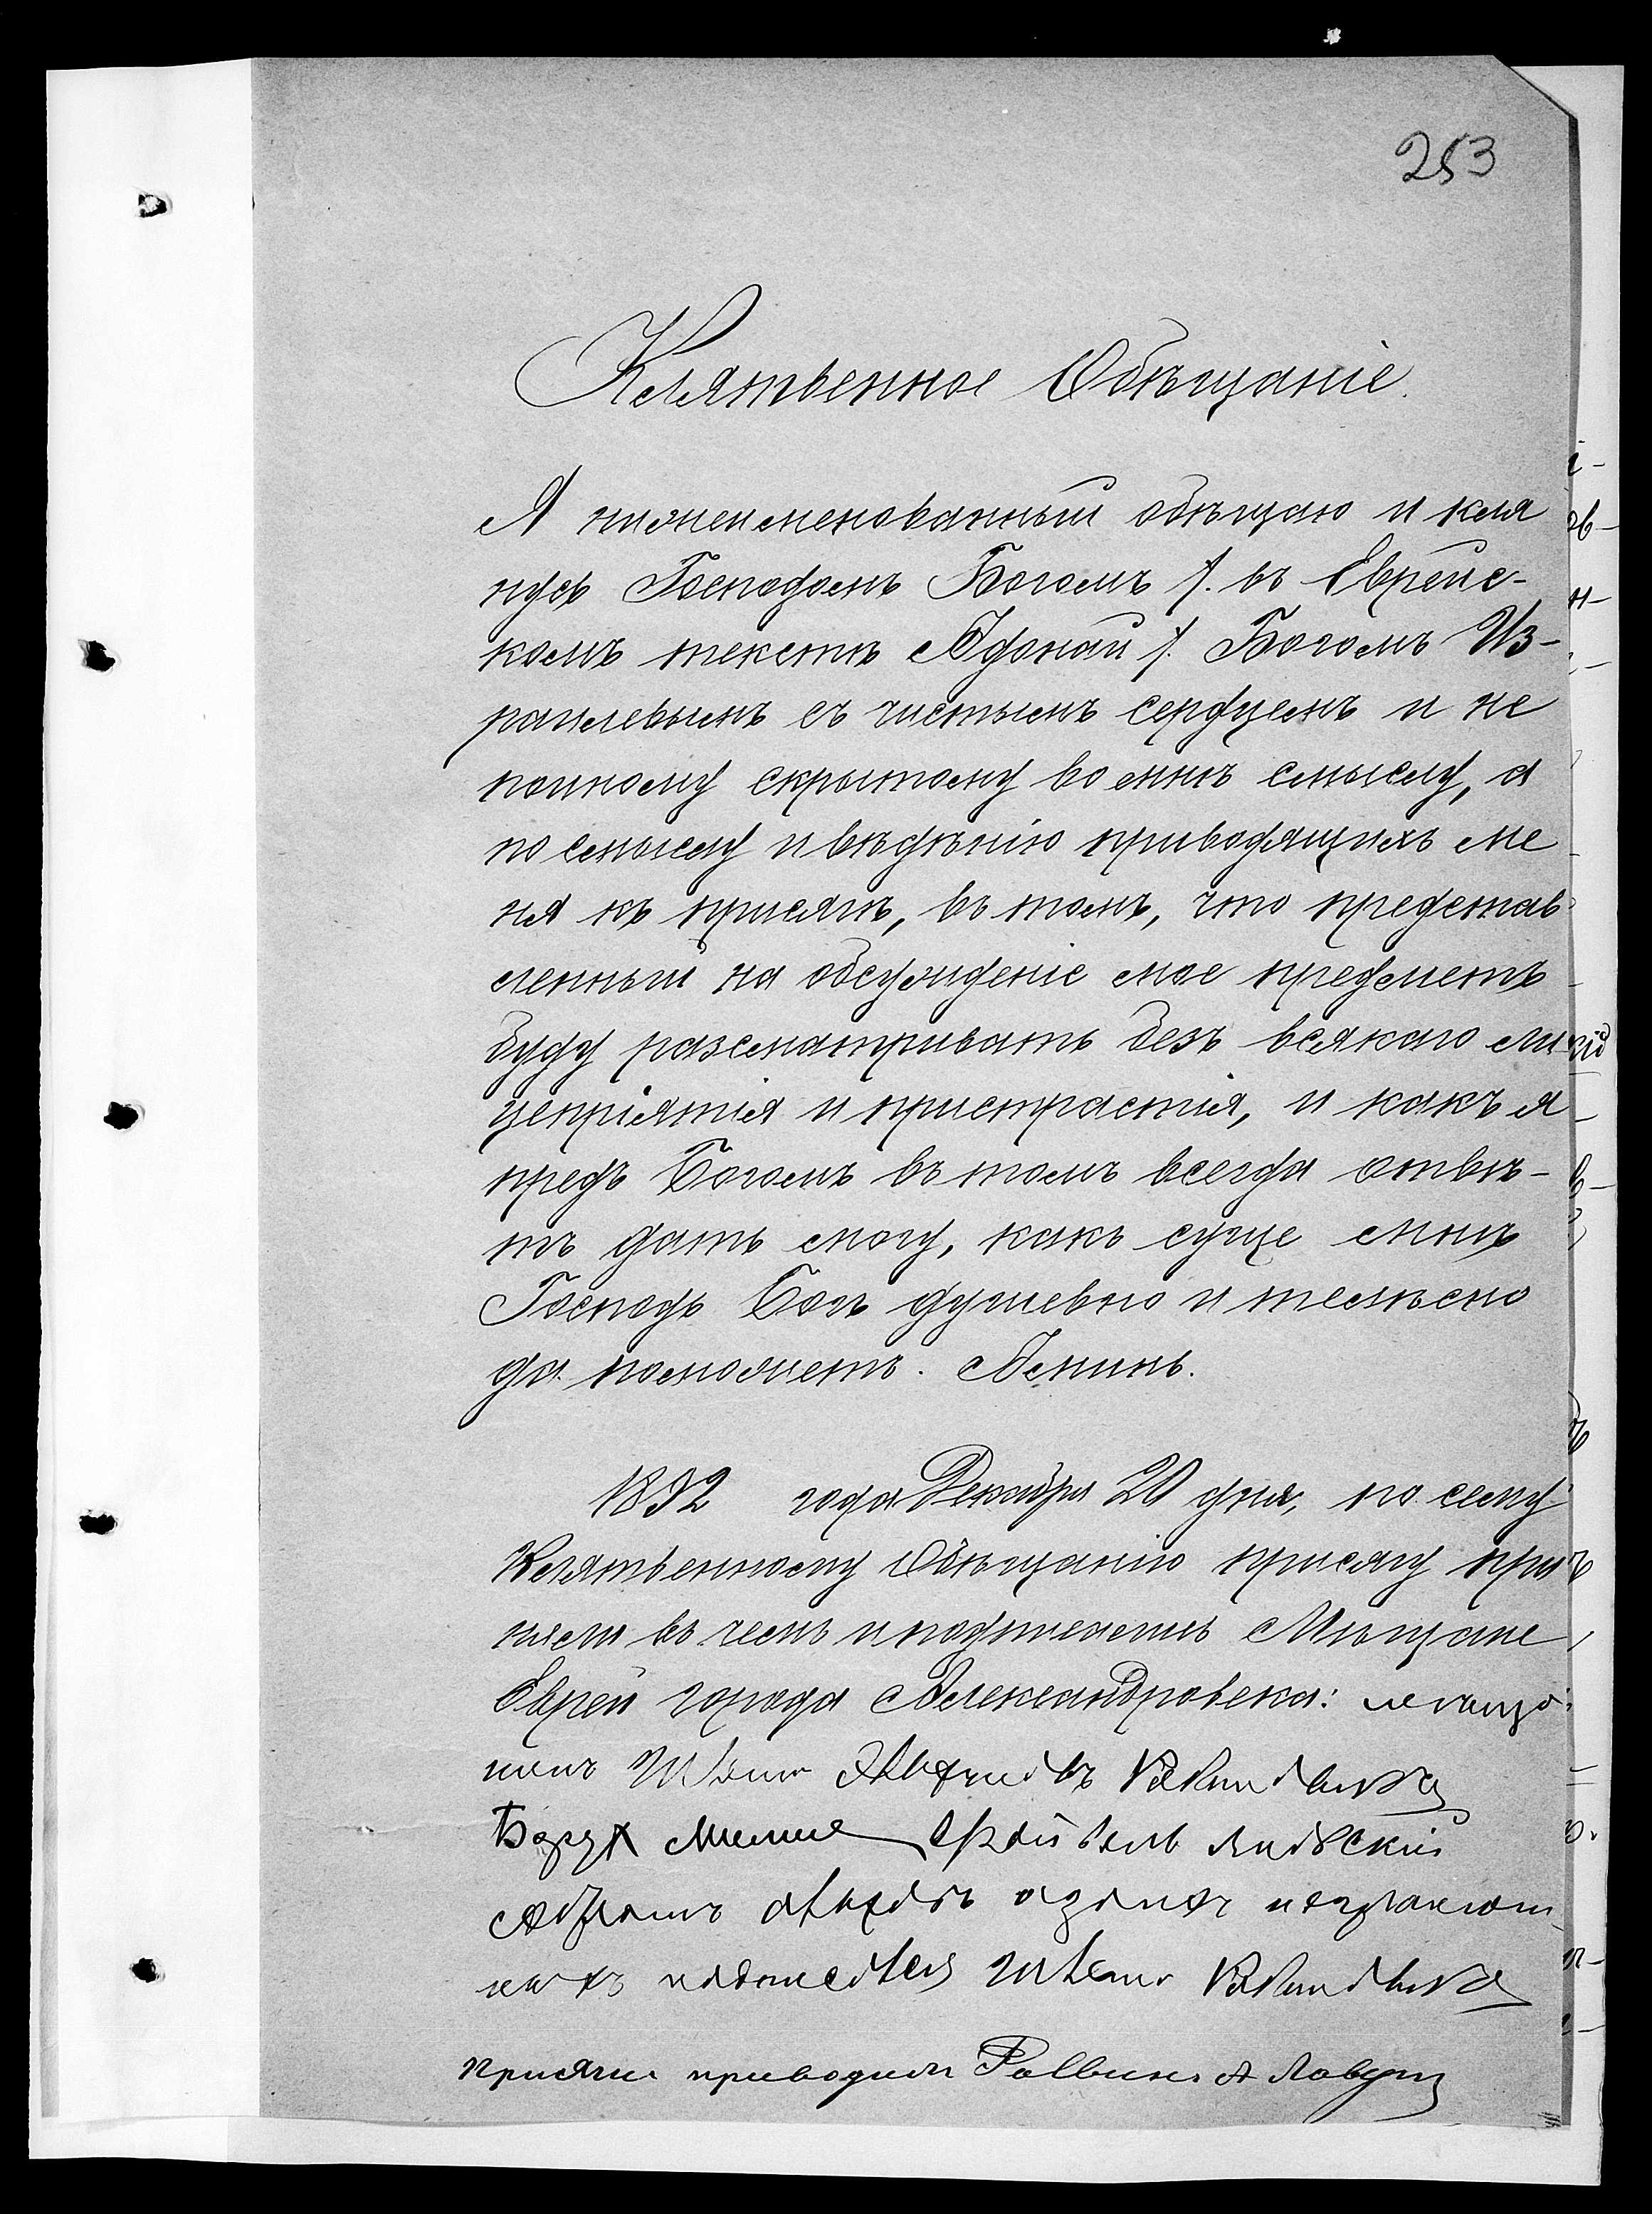 253
Клятвенное Обѣщаніе.
Я нижеименованный обѣщаю и кля
нусь Господомъ Богомъ /. въ Еврейс-
комъ текстѣ Адонай /. Богомъ Из-
раилевымъ съ чистымъ сердцемъ и не
поиному скрытому во мнѣ смыслу, а
по смыслу и вѣдѣнію приводящихъ ме
ня къ присягѣ, въ томъ, что представ
ленный на обсужденіе мое предметъ
буду разсматривать безъ всякаго ли
цепріятія и пристрастія, и какъ я
предъ Богомъ въ томъ всегда отвѣ-
тъ дать могу, какъ суще мнѣ
Господь Богъ душевно и телѣсно
да поможетъ. Аминь.
1892 года Декабря 20 дня, по сему
Клятвенному Обѣщанію присягу при
няли въ чемъ и подписались Мѣщане
Евреи города Александровска:
Борух
Абрамъ
Присяги приводилъ Раввинъ А